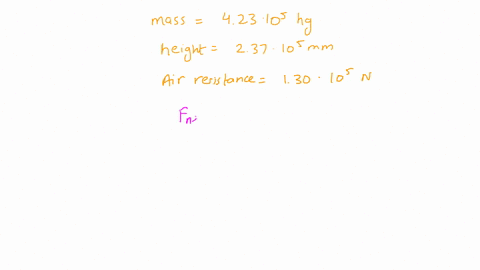 mass = 4.23·10⁵ hg
height = 2.37·10⁵ mm
Air resistance = 1.30 · 10⁵ N